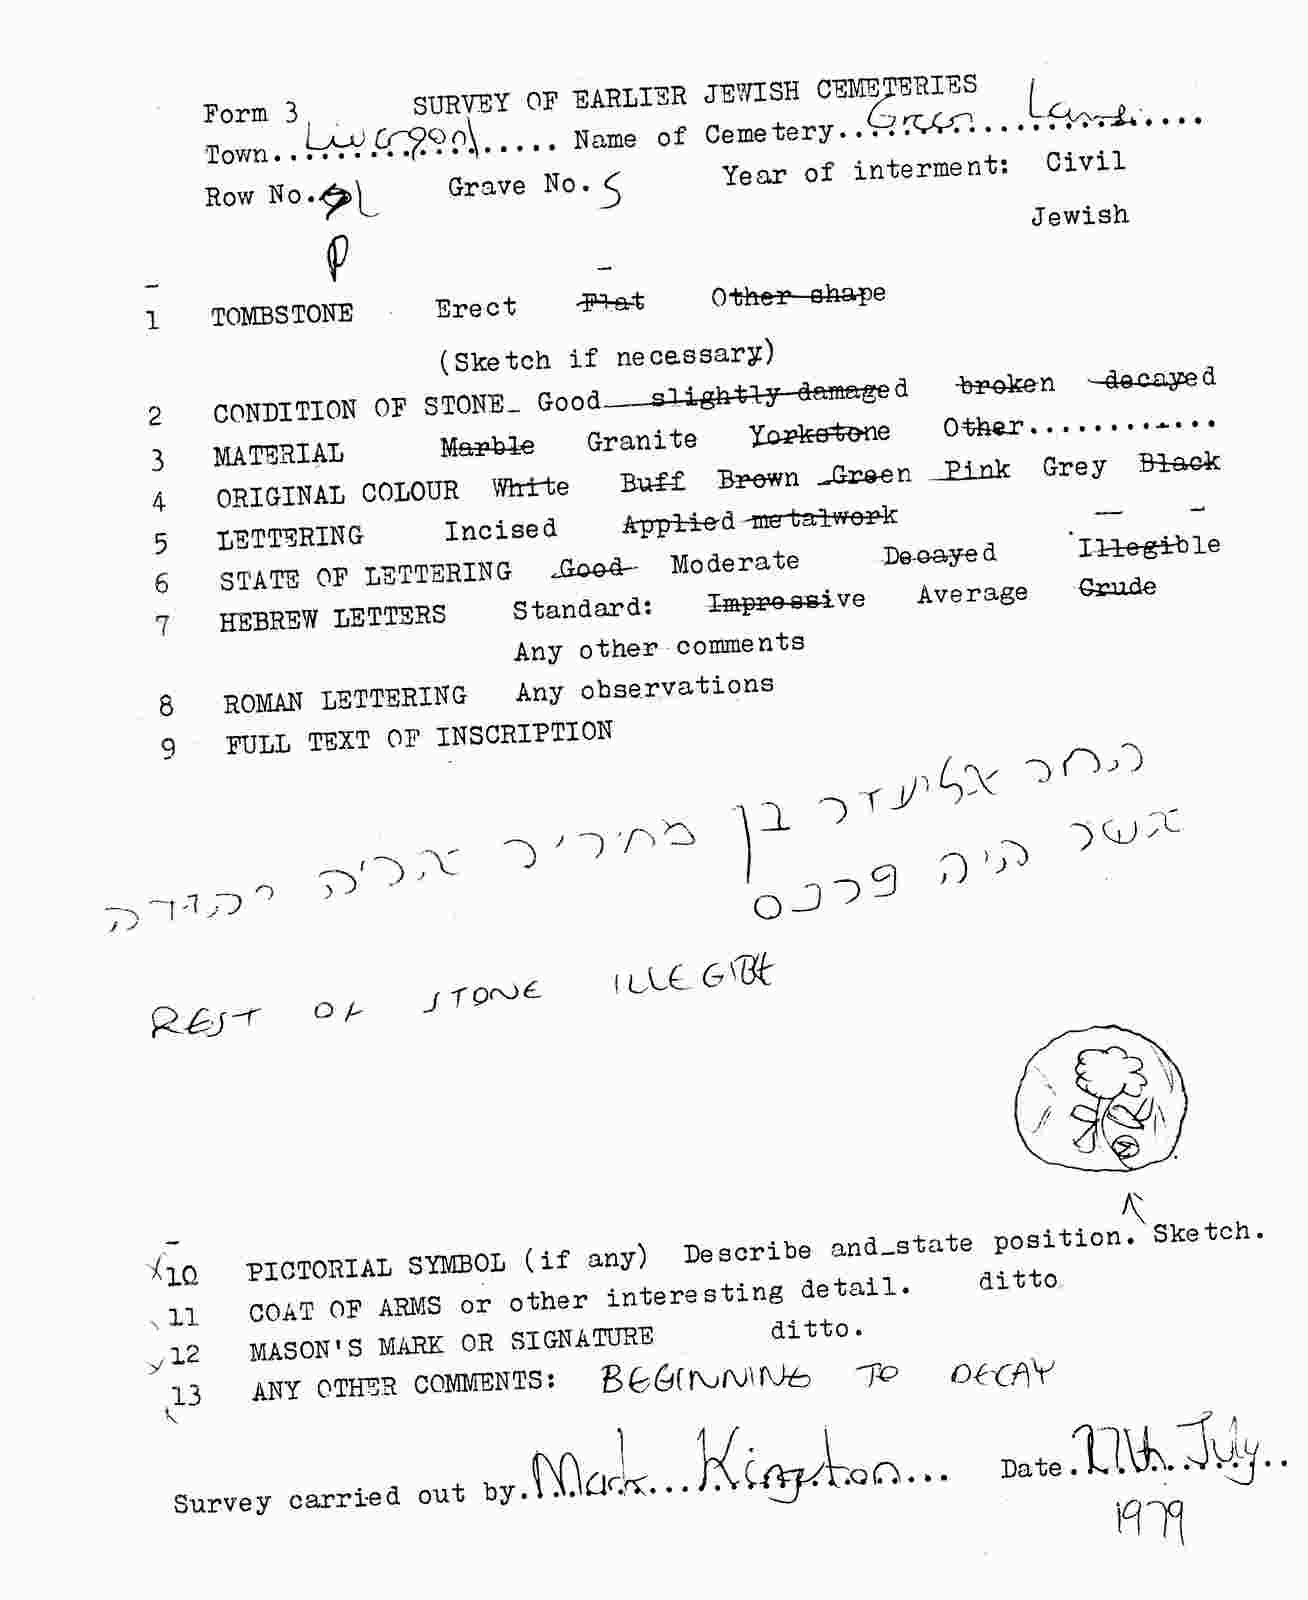 Form 3 SURVEY OF EARLIER JEWISH CEMETERIES
Town..Liverpool..... Name of Cemetery...Green Lane.....
Row No. Grave No. 5 Year of interment: Civil
P Jewish
1 TOMBSTONE Erect Flat Other shape
(Sketch if necessary)
2 CONDITION OF STONE_ Good slightly damaged broken decayed
3 MATERIAL Marble Granite Yorkstone Other............
4 ORIGINAL COLOUR White Buff Brown Green Pink Grey Black
5 LETTERING Incised Applied metalwork
6 STATE OF LETTERING Good Moderate Decayed Illegible
7 HEBREW LETTERS Standard: Impressive Average Crude
Any other comments
8 ROMAN LETTERING Any observations
9 FULL TEXT OF INSCRIPTION
אליעזר בן אריה יהודה
אשר היה פרנס
REST OF STONE ILLEGIBLE
10 PICTORIAL SYMBOL (if any) Describe and_state position. Sketch.
11 COAT OF ARMS or other interesting detail. ditto
12 MASON'S MARK OR SIGNATURE ditto.
13 ANY OTHER COMMENTS: BEGINNING TO DECAY
Survey carried out by. Mark Kingston... Date. 27th July..
1979